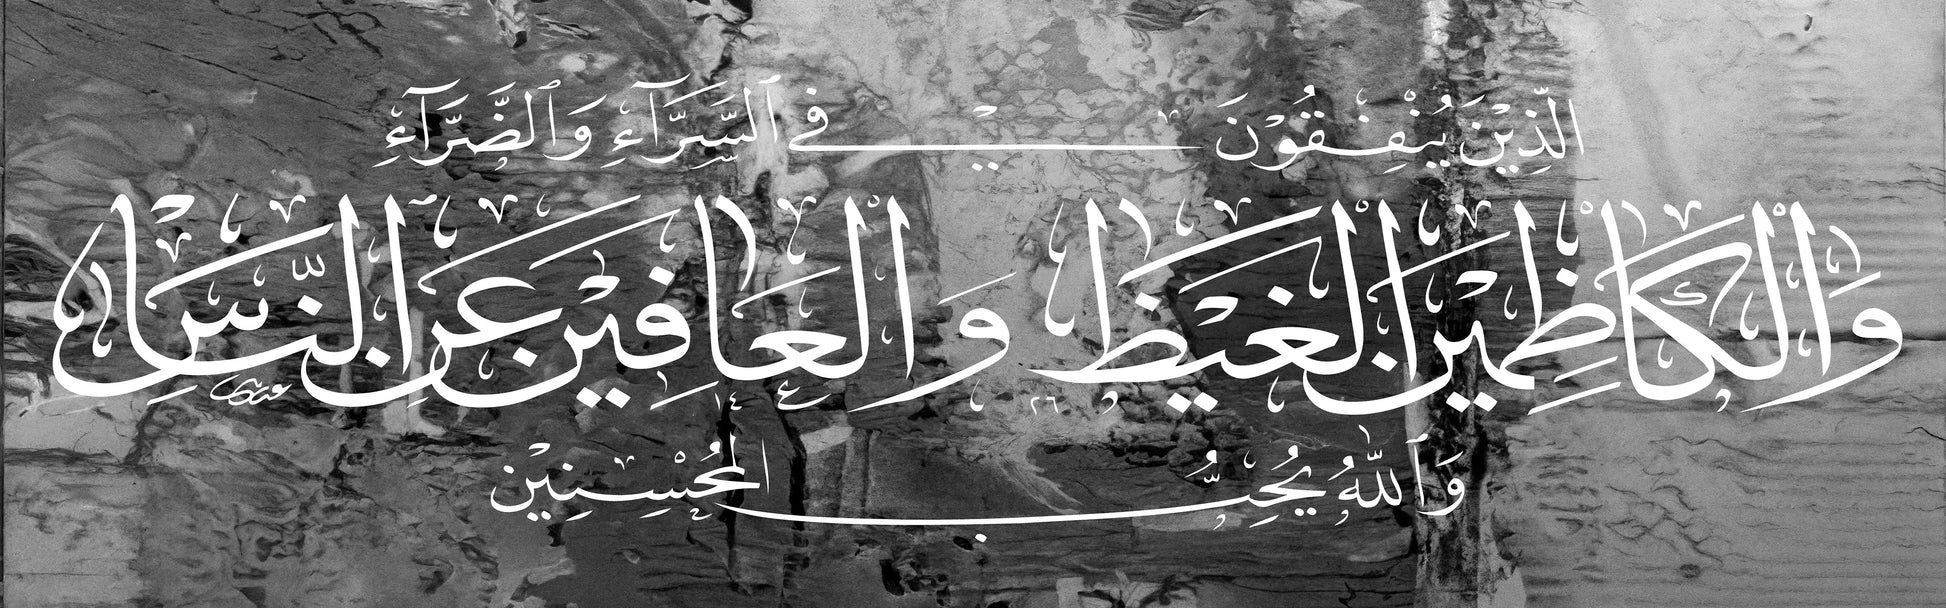 الَّذِيْنَ يُنْفِقُوْنَ فِي ٱلسَّرَّآءِ وَٱلضَّرَّآءِ
وَالْكَاظِمِيْنَ الْغَيْظَ وَالْعَافِيْنَ عَنِ النَّاسِ
١٤ ٢٦
وَٱللّٰهُ يُحِبُّ الْمُحْسِنِيْنَ